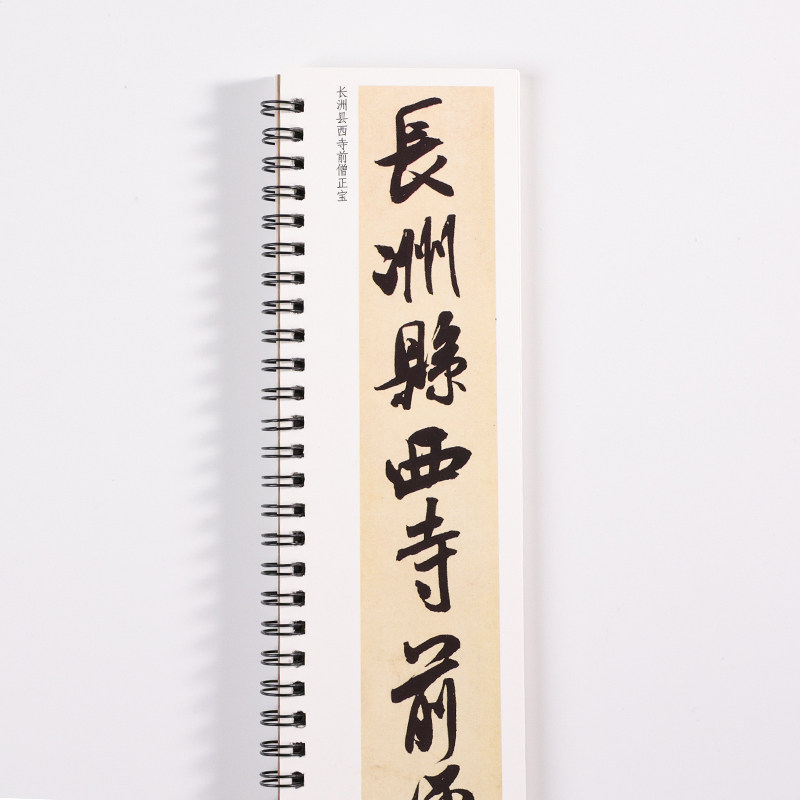 长洲县西寺前僧正宝
長洲縣西寺前